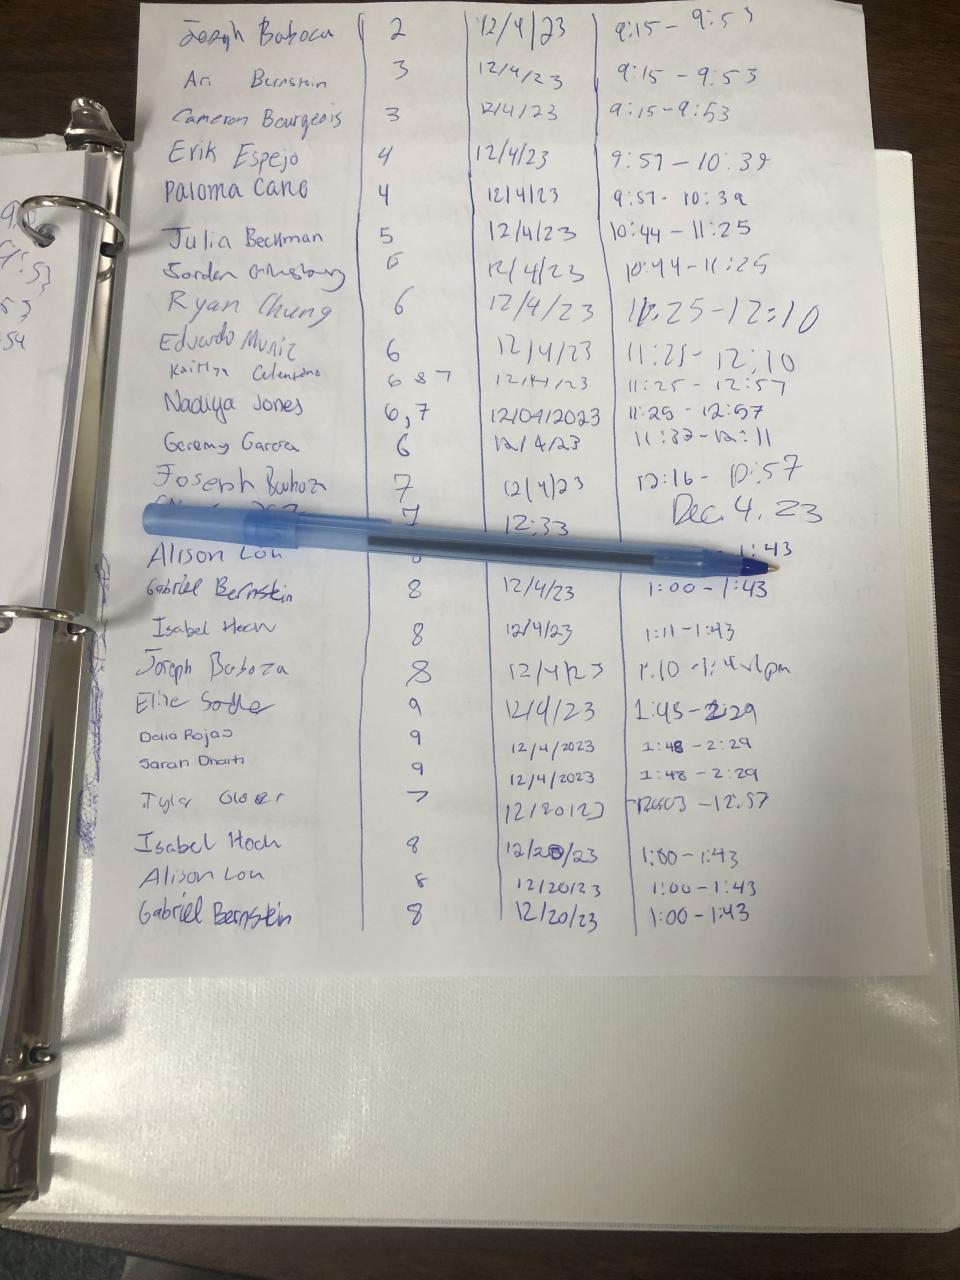 Joseph Baboca 2 12/4/23 9:15 - 9:53
Ari Bernstein 3 12/4/23 9:15 - 9:53
Cameron Bourgeois 3 12/4/23 9:15-9:53
Erik Espejo 4 12/4/23 9:57 - 10:39
Paloma Cano 4 12/4/23 9:57- 10:39
Julia Beckman 5 12/4/23 10:44 - 11:25
Jorden 12/4/23 10:44-11:25
Ryan Chung 6 12/4/23 11:25-12:10
Eduardo Muniz 6 12/4/23 11:25- 12:10
Kaitlyn Celentano 6 & 7 12/4/23 11:25 - 12:57
Nadiya Jones 6,7 12/04/2023 11:25 - 12:57
Geremy Garcia 6 12/4/23 11:32-12:11
Joseph Barboza 7 12/4/23 12:16-
7 12:33 Dec. 4. 23
Alison Lou 1:43
Gabriel Bernstein 8 12/4/23 1:00 - 1:43
Isabel Hoch 8 12/4/23 1:11 -1:43
Joseph Barboza 8 12/4/23 1:10
Elise 9 12/4/23 1:45-2:29
Delia Rojas 9 12/4/2023 1:48 - 2:29
Sarah Dhaiti 9 12/4/2023 1:48 - 2:29
Tyler Glover 7 12/20/23 -12:57
Isabel Hoch 8 12/20/23 1:00-1:43
Alison Lou 8 12/20/23 1:00-1:43
Gabriel Bernstein 8 12/20/23 1:00 - 1:43